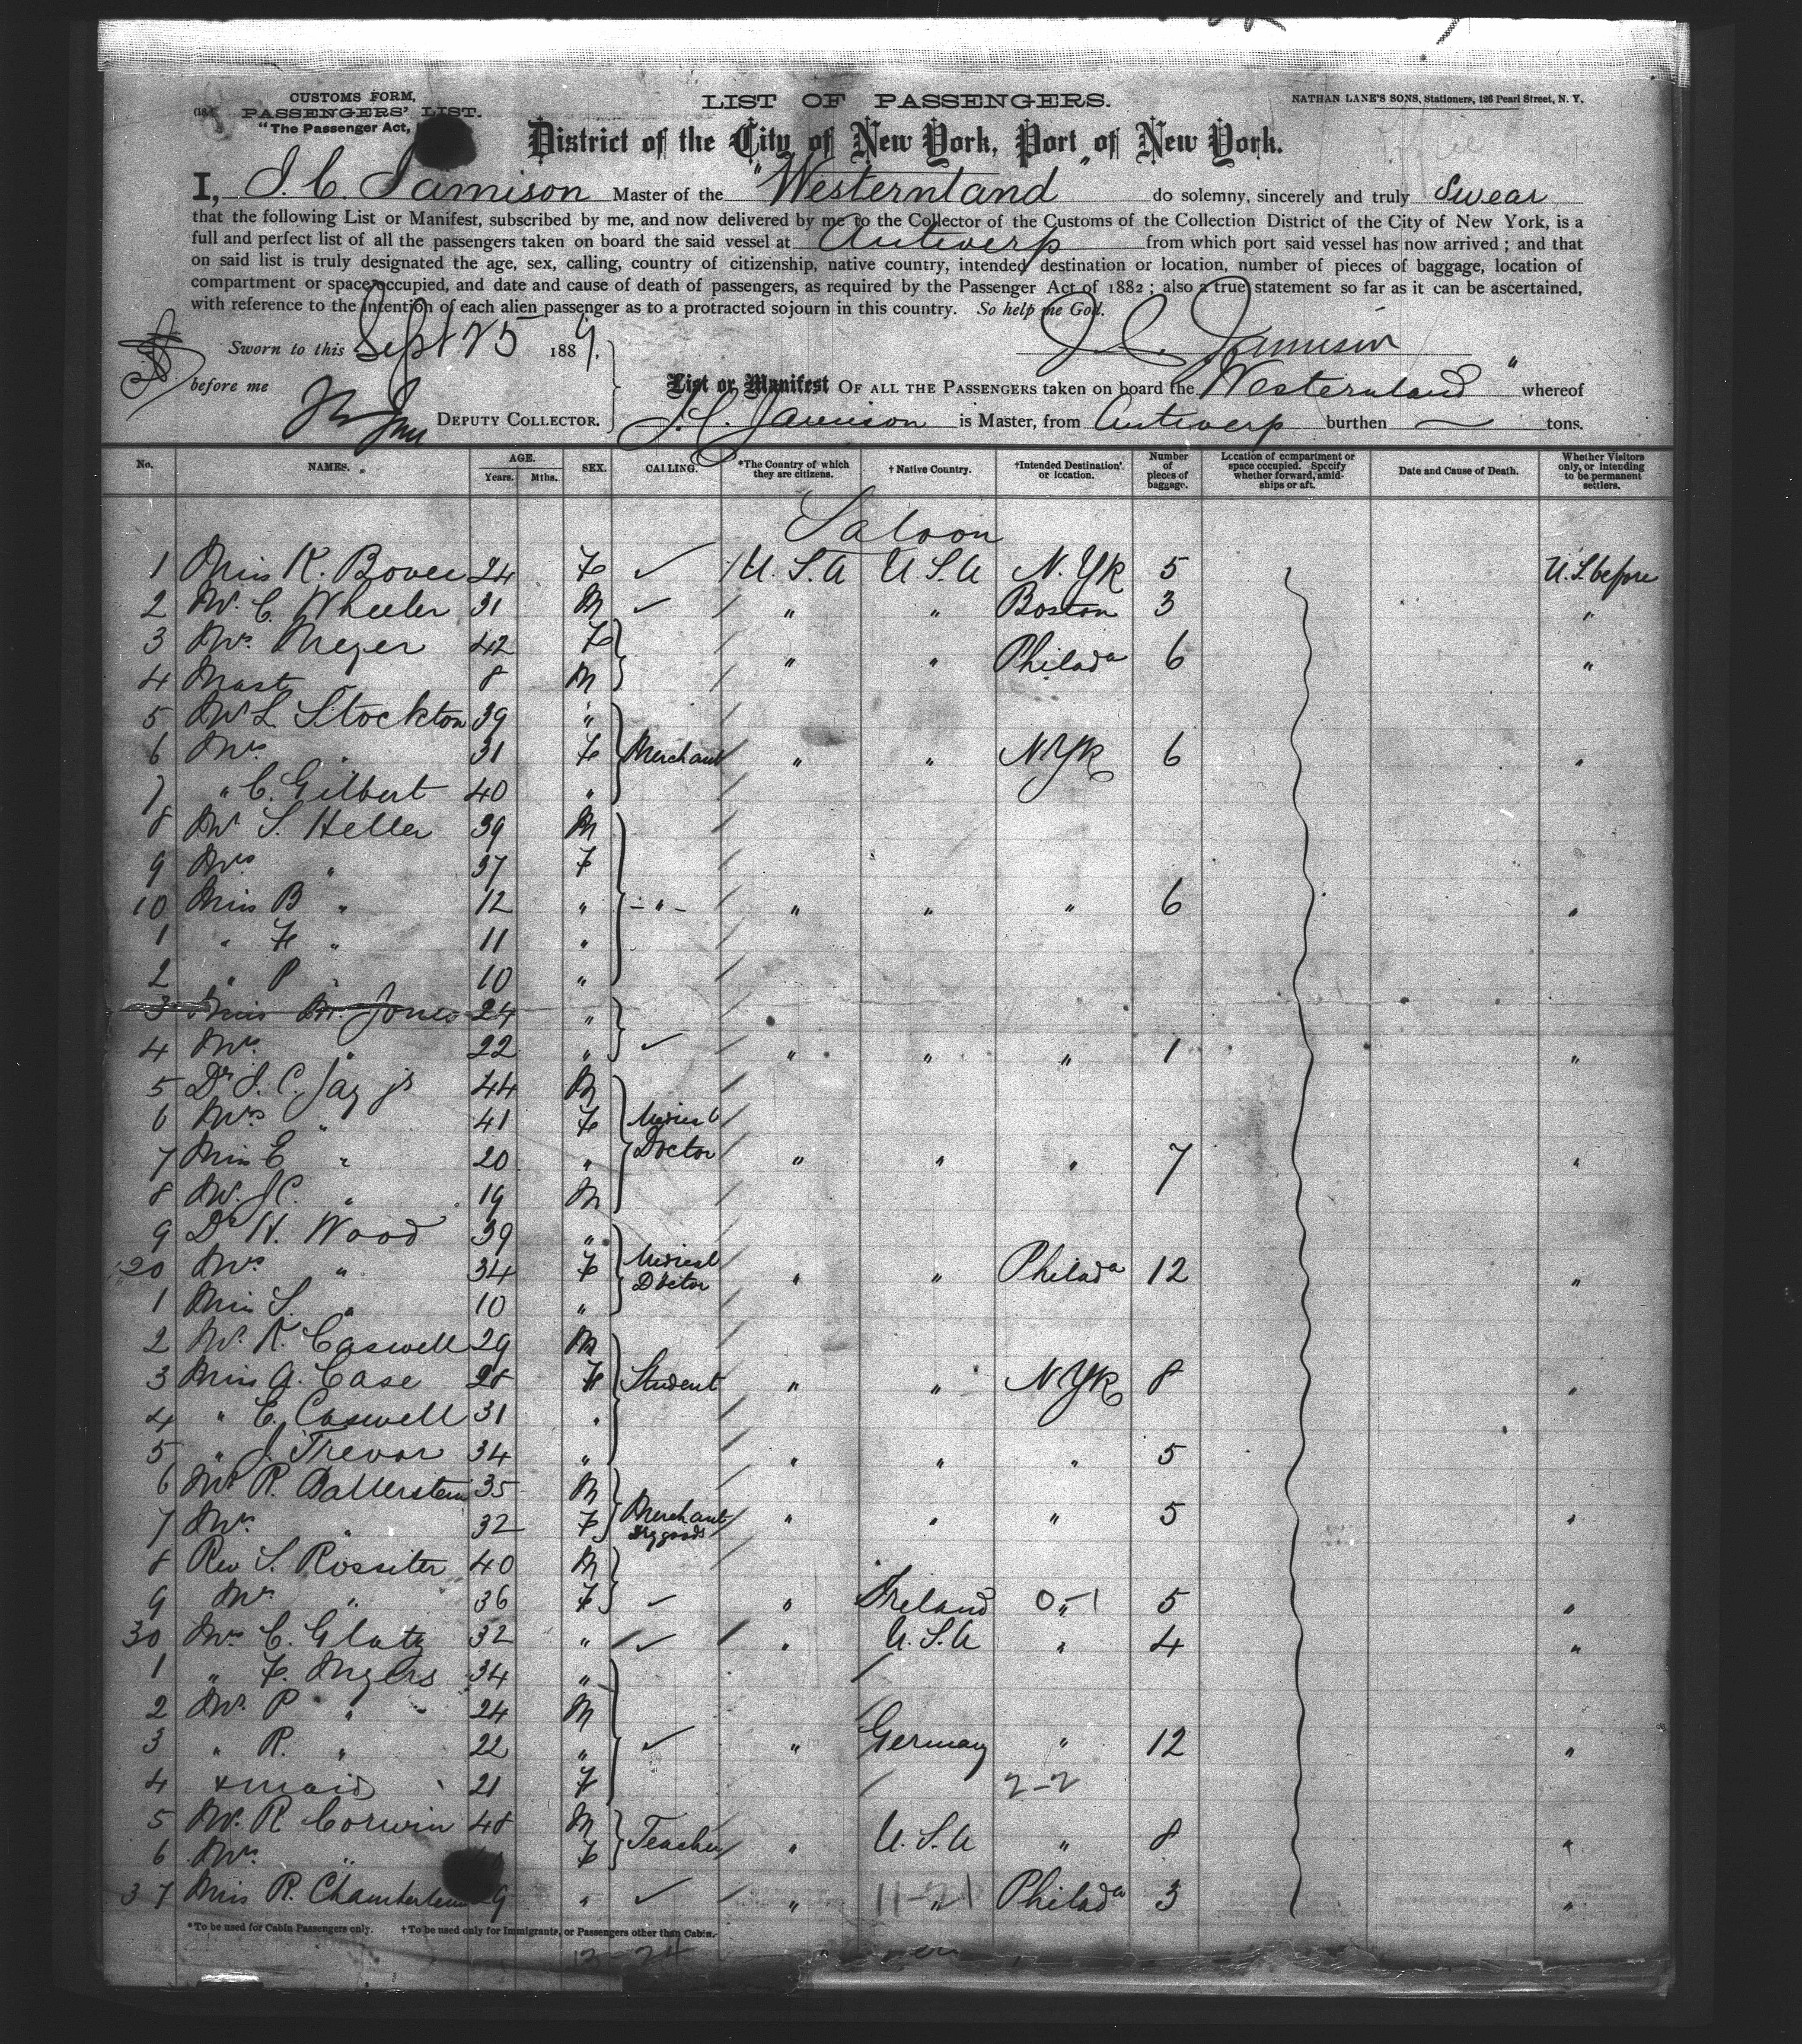 CUSTOMS FORM,
PASSENGERS' LIST.
"The Passenger Act,
LIST OF PASSENGERS.
NATHAN LANE'S SONS, Stationers, 126 Pearl Street, N. Y.
District of the City of New York, Port of New York.
I, J. C. Jamison Master of the "Westernland" do solemny, sincerely and truly Swear
that the following List or Manifest, subscribed by me, and now delivered by me to the Collector of the Customs of the Collection District of the City of New York, is a
full and perfect list of all the passengers taken on board the said vessel at Antwerp from which port said vessel has now arrived; and that
on said list is truly designated the age, sex, calling, country of citizenship, native country, intended destination or location, number of pieces of baggage, location of
compartment or space occupied, and date and cause of death of passengers, as required by the Passenger Act of 1882; also a true statement so far as it can be ascertained,
with reference to the intention of each alien passenger as to a protracted sojourn in this country. So help me God.
Sworn to this Sept 25 1889. J. C. Jamison
before me List or Manifest OF ALL THE PASSENGERS taken on board the Westernland " whereof
DEPUTY COLLECTOR. J. C. Jamison is Master, from Antwerp burthen — tons.
No. NAMES. AGE. Years. Mths. SEX. CALLING. *The Country of which they are citizens. † Native Country. †Intended Destination or location. Number of pieces of baggage. Location of compartment or space occupied. Specify whether forward, amidships or aft. Date and Cause of Death. Whether Visitors only, or intending to be permanent settlers.
Saloon
1 Miss K. Bovee 24 Fe ✓ U.S.A U.S.A N.Yk 5 U.S. before
2 Mr. C. Wheeler 31 M ✓ " " Boston 3 "
3 Mrs. Meyer 42 Fe " " Philada 6 "
4 Mast " 8 M
5 Mr L Stockton 39 "
6 Mrs " 31 Fe Merchant " " NYk 6 "
7 " C. Gilbert 40 "
8 Mr S. Heller 39 M
9 Mrs " 37 F
10 Miss B " 12 " - " - " " " 6 "
1 " F " 11 "
2 " P " 10 "
3 Miss M. Jones 24 "
4 Mrs " 22 " ✓ " " " 1 "
5 Dr J. C. Jay jr 44 M
6 Mrs " 41 Fe Medical
7 Miss E " 20 " Doctor " " " 7 "
8 Mr. J C. " 19 M
9 Dr H. Wood 39 "
20 Mrs " 34 Fe Medical Doctor " " Philada 12 "
1 Miss S. " 10 "
2 Mr. K. Caswell 29 M
3 Miss A. Case 28 Fe Student " " NYk 8 "
4 " E. Caswell 31 "
5 " J. Trevor 34 " " " " 5
6 Mr R. Ballerstein 35 M
7 Mrs " 32 F Merchant Dry goods " " " 5 "
8 Rev S. Rossiter 40 M
9 Mrs " 36 F ✓ " Ireland " 0-1 5 "
30 Mrs C. Glatz 32 " ✓ " U.S.A " 4 "
1 " F. Myers 34 "
2 Mr. P " 24 M
3 " R. " 22 " ✓ " Germany " 12 "
4 + maid 21 F 2-2
5 Mr. R Corwin 48 M
6 Mrs. " F Teacher " U.S.A " 8 "
37 Miss R. Chamberlain 9 " ✓ " 11-21 " Philada 3 "
*To be used for Cabin Passengers only. †To be used only for Immigrants, or Passengers other than Cabin.
13-24